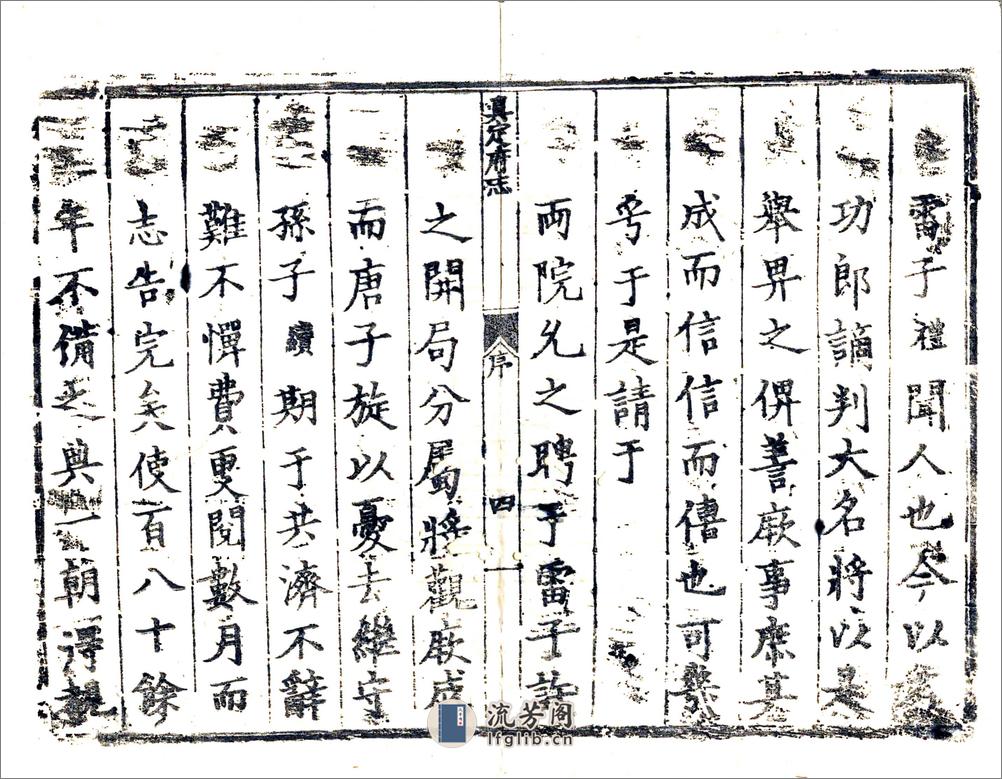 雷子禮聞人也今以
功郎謫判大名將以是
舉畀之俾善厥事庶其
成而信信而傳也可幾
乎于是請于
兩院允之聘于雷子許
真定府志
序
四
之開局分屬將觀厥成
而唐子旋以憂去繼守
孫子續期于共濟不辭
難不憚費更閱數月而
志告完矣使百八十餘
年不備之典一朝得
流芳阁
lfglib.cn